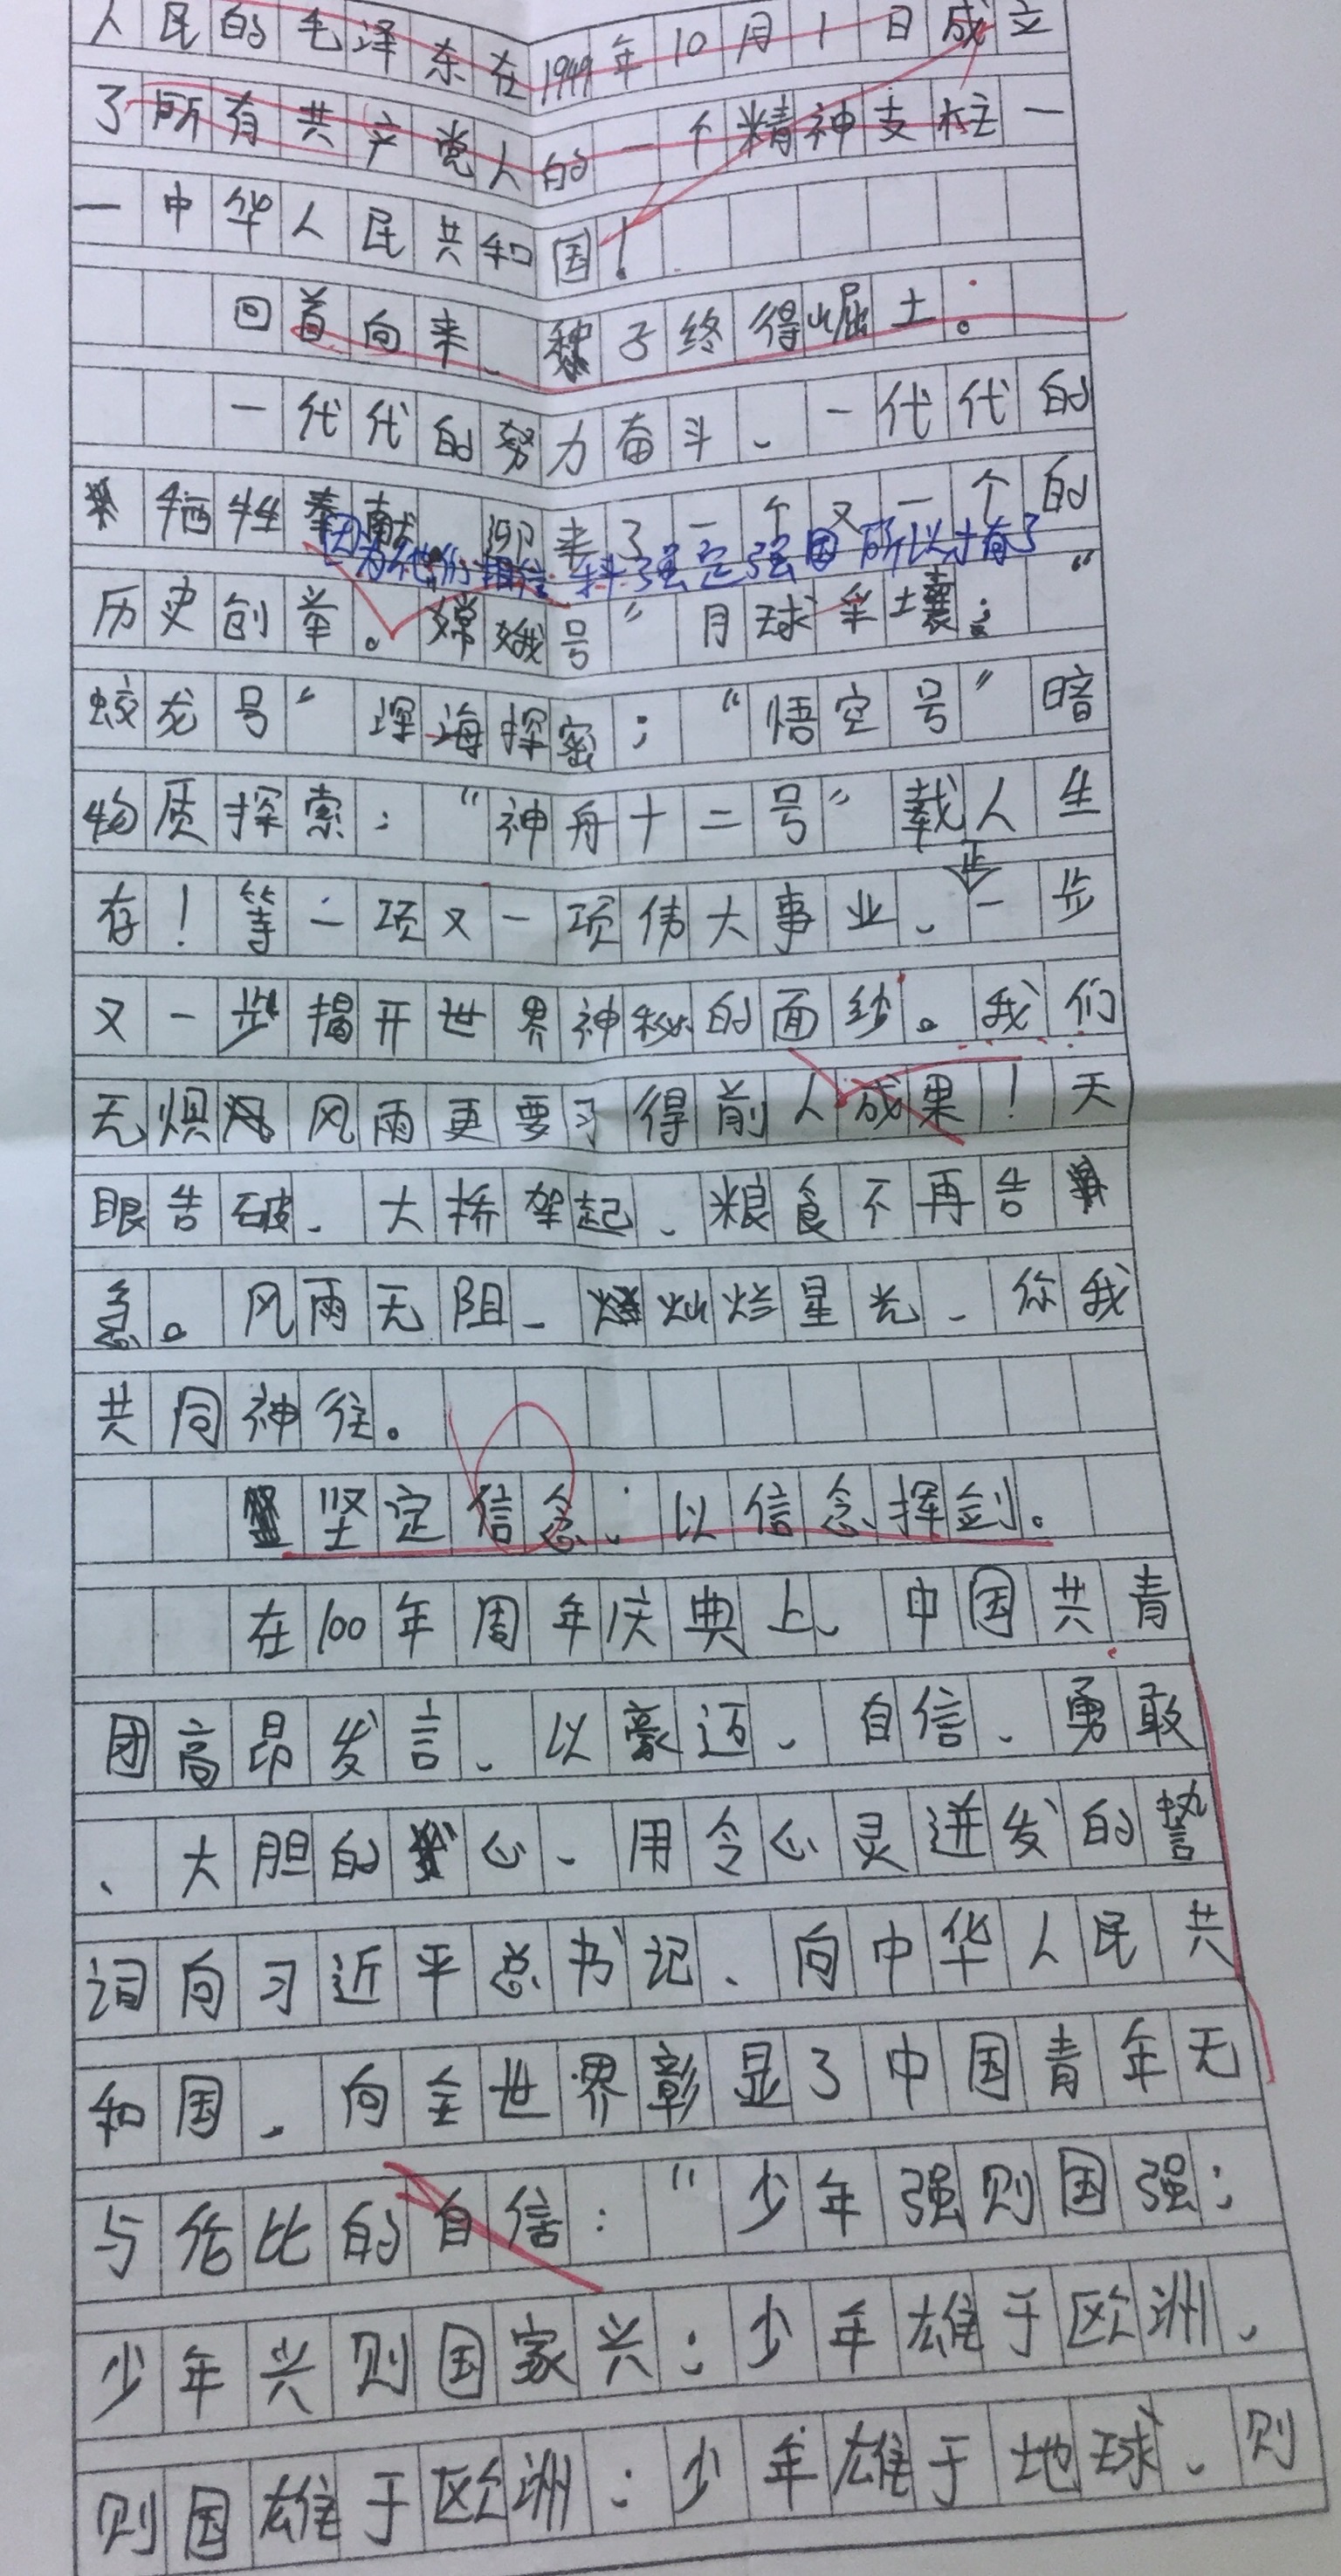 人民的毛泽东在1949年10月1日成立
了所有共产党人的一个精神支柱一
一中华人民共和国！
回首向来、种子终得崛土。
一代代的努力奋斗、一代代的
牺牲奉献、迎来了一个又一个的
因为他们相信科强定强国所以才有了
历史创举。嫦娥号”月球采土壤；“
蛟龙号”深海探密；“悟空号”暗
物质探索；“神舟十二号”载人生
存！等一项又一项伟大事业、一步
正
又一步揭开世界神秘的面纱。我们
无惧风雨更要习得前人成果！天
眼告破、大桥架起、粮食不再告
急。风雨无阻、灿烂星光、你我
共同神往。
坚定信念：以信念挥剑。
在100年周年庆典上、中国共青
团高昂发言、以豪迈、自信、勇敢
、大胆的心、用令心灵迸发的誓
词向习近平总书记、向中华人民共
和国、向全世界彰显了中国青年无
与伦比的自信：“少年强则国强；
少年兴则国家兴；少年雄于欧洲、
则国雄于欧洲；少年雄于地球、则